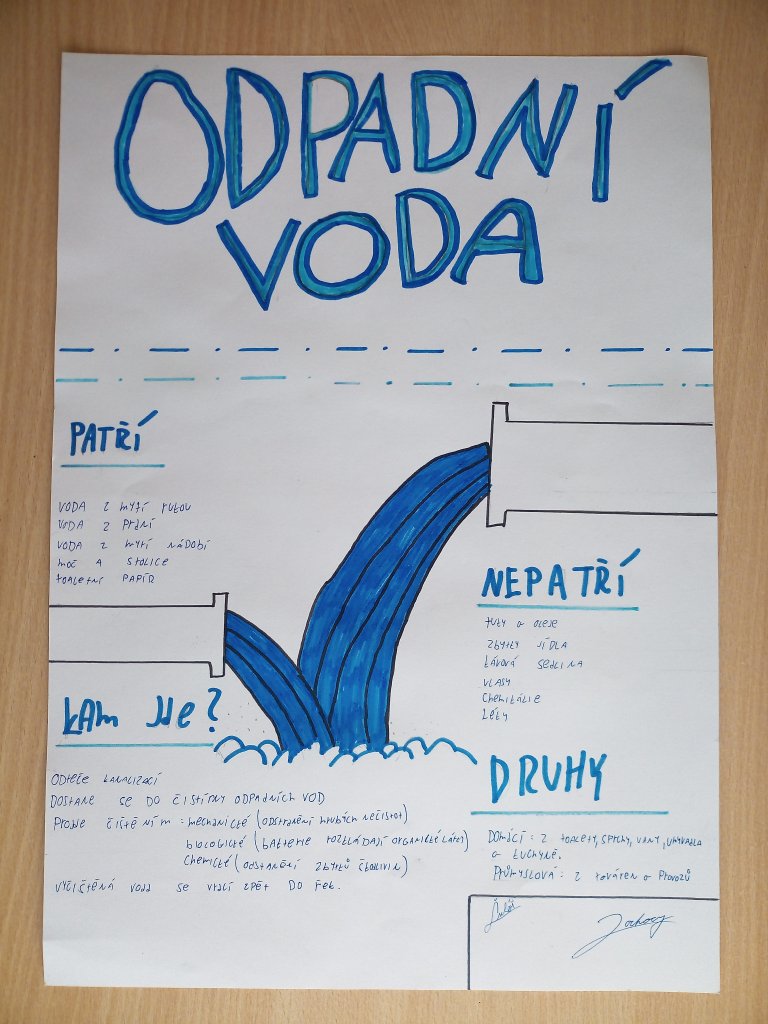 ODPADNÍ
VODA
PATŘÍ
VODA Z MYTÍ RUKOU
VODA Z PRANÍ
VODA Z MYTÍ NÁDOBÍ
MOČ A STOLICE
TOALETNÍ PAPÍR
NEPATŘÍ
TUKY A OLEJE
ZBYTKY JÍDLA
KÁVOVÁ SEDLINA
VLASY
CHEMIKÁLIE
LÉKY
KAM JDE?
ODTEČE KANALIZACÍ
DOSTANE SE DO ČISTÍRNY ODPADNÍCH VOD
PROJDE ČIŠTĚNÍM: MECHANICKÉ (ODSTRANĚNÍ HRUBÝCH NEČISTOT)
BIOLOGICKÉ (BAKTERIE ROZKLÁDAJÍ ORGANICKÉ LÁTKY)
CHEMICKÉ (ODSTANĚNÍ ZBYTKŮ ČKODLIVIN)
VYČIŠTĚNÁ VODA SE VRACÍ ZPĚT DO ŘEK.
DRUHY
DOMÁCÍ: Z TOALETY, SPRCHY, VANY, UMYVADLA
A KUCHYNĚ.
PRŮMYSLOVÁ: Z TOVÁREN A PROVOZŮ